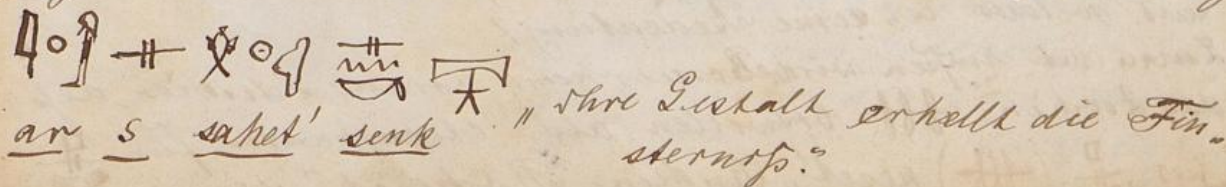 ar s sahet' senk „Ihre Gestalt erhellt die Fin-
sterniß.“